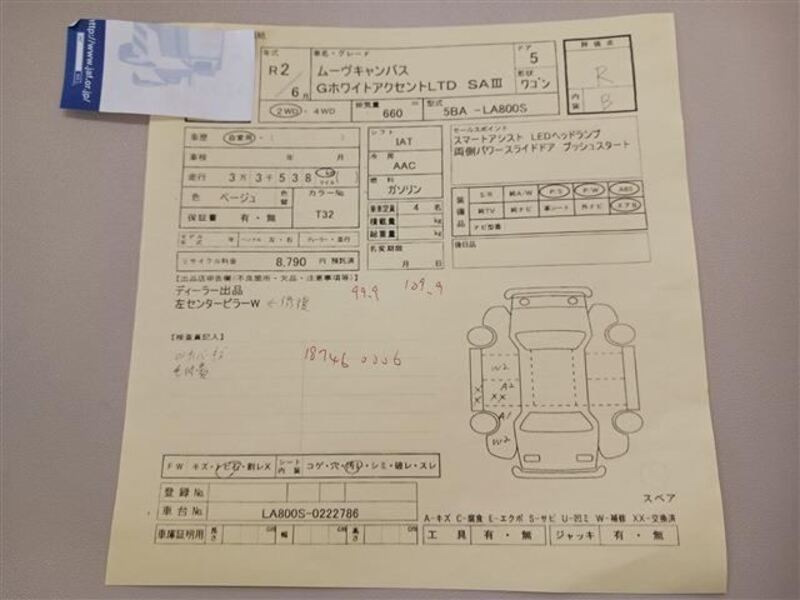 http://www.jat.or.jp/
年式 車名・グレード ドア 評価点
R2/6月 ムーヴキャンバス 5 R
GホワイトアクセントLTD SAⅢ 形状 ワゴン
2WD・4WD 排気量 660 cc 型式 5BA -LA800S 内装 B
車歴 自家用・( ) シフト IAT セールスポイント
スマートアシスト LEDヘッドランプ
両側パワースライドドア プッシュスタート
車検 年 月 冷房 AAC
走行 3万3千538 km マイル 燃料 ガソリン
色 ベージュ 色替 カラーNo. T32
保証書 有・無
乗車定員 4 名
積載量 kg
総重量 kg
装備品 S/R 純A/W P/S P/W ABS
純TV 純ナビ 革シート 外ナビ エアB
ナビ型番
モデル年式 年 ハンドル 左・右 ディーラー・並行
名変期限 月 日
後日品
リサイクル料金 8,790 円 預託済
【出品店申告欄(不良箇所・欠品・注意事項等)】
ディーラー出品 99.9 109.9
左センターピラーW ←修復
【検査員記入】
18746 0006
W2
A2
X
X
XX
A1
W2
FW キズ・トビ石・割レX シート内装 コゲ・穴・汚レ・シミ・破レ・スレ
登録 No.
車台 No. LA800S-0222786
スペア
A-キズ C-腐食 E-エクボ S-サビ U-凹ミ W-補修 XX-交換済
車庫証明用 長さ cm 幅 cm 高さ cm 工具 有・無 ジャッキ 有・無